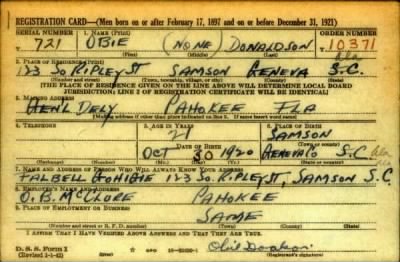 REGISTRATION CARD—(Men born on or after February 17, 1897 and on or before December 31, 1921)
SERIAL NUMBER 1. NAME (Print) ORDER NUMBER
T 721 OBIE (NONE) DONALDSON 10371
(First) (Middle) (Last)
2. PLACE OF RESIDENCE (Print) Ala
123 SO. RIPLEY ST SAMSON GENEVA S.C.
(Number and street) (Town, township, village, or city) (County) (State)
[THE PLACE OF RESIDENCE GIVEN ON THE LINE ABOVE WILL DETERMINE LOCAL BOARD
JURISDICTION; LINE 2 OF REGISTRATION CERTIFICATE WILL BE IDENTICAL]
3. MAILING ADDRESS
GEN'L DELY PAHOKEE FLA
[Mailing address if other than place indicated on line 2. If same insert word same]
4. TELEPHONE 5. AGE IN YEARS 6. PLACE OF BIRTH
21 SAMSON
DATE OF BIRTH (Town or county)
OCT 30 1920 GENEVA CO S.C. Ala
(Exchange) (Number) (Mo.) (Day) (Yr.) (State or country)
7. NAME AND ADDRESS OF PERSON WHO WILL ALWAYS KNOW YOUR ADDRESS
TALBELL 123 SO. RIPLEY ST, SAMSON S.C.
8. EMPLOYER'S NAME AND ADDRESS
O. B. McCLURE PAHOKEE
9. PLACE OF EMPLOYMENT OR BUSINESS
SAME
(Number and street or R. F. D. number) (Town) (County) (State)
I AFFIRM THAT I HAVE VERIFIED ABOVE ANSWERS AND THAT THEY ARE TRUE.
D. S. S. Form 1
(Revised 1-1-42) (Registrant's signature)